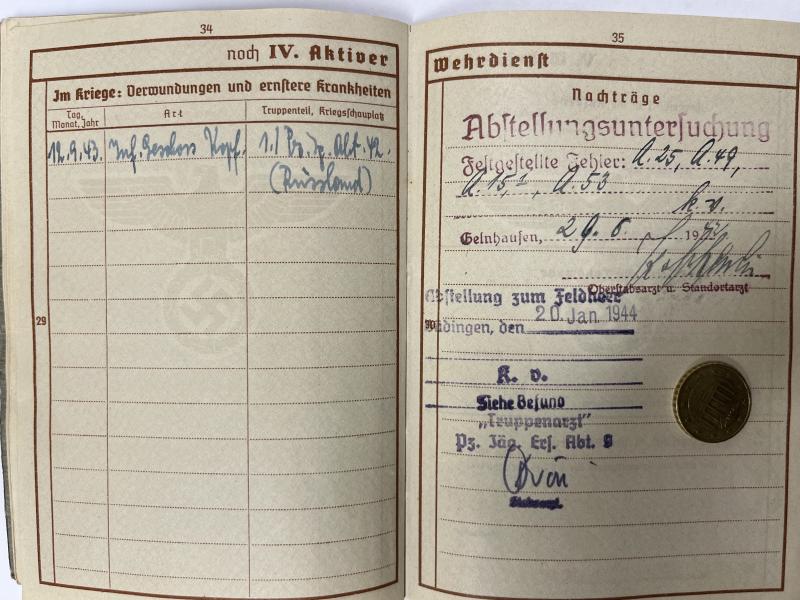 34
noch IV. Aktiver
Im Kriege: Verwundungen und ernstere Krankheiten
Tag, Monat, Jahr
Art
Truppenteil, Kriegsschauplatz
12.9.43.
Inf. Geschoss Kopf.
1./Pz. Jg. Abt. 42.
(Russland)
29
35
Wehrdienst
Nachträge
Abstellungsuntersuchung
Festgestellte Fehler: A.25, A.49,
A.15,² , A.53
k.v.
Gelnhausen, 29.8. 1942
Oberstabsarzt u. Standortarzt
Abstellung zum Feldheer
Büdingen, den 20. Jan. 1944
K. v.
Siehe Befund
„Truppenarzt"
Pz. Jäg. Ers. Abt. 9